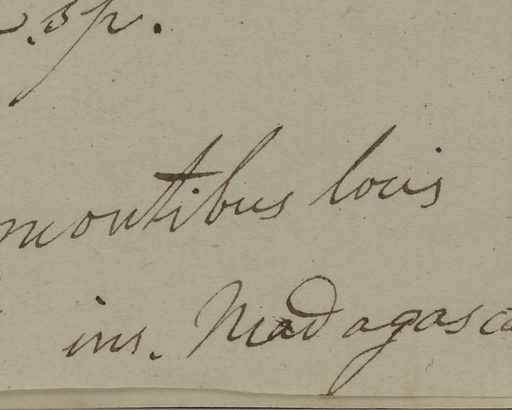 sp.
montibus locis
ins. Madagasca